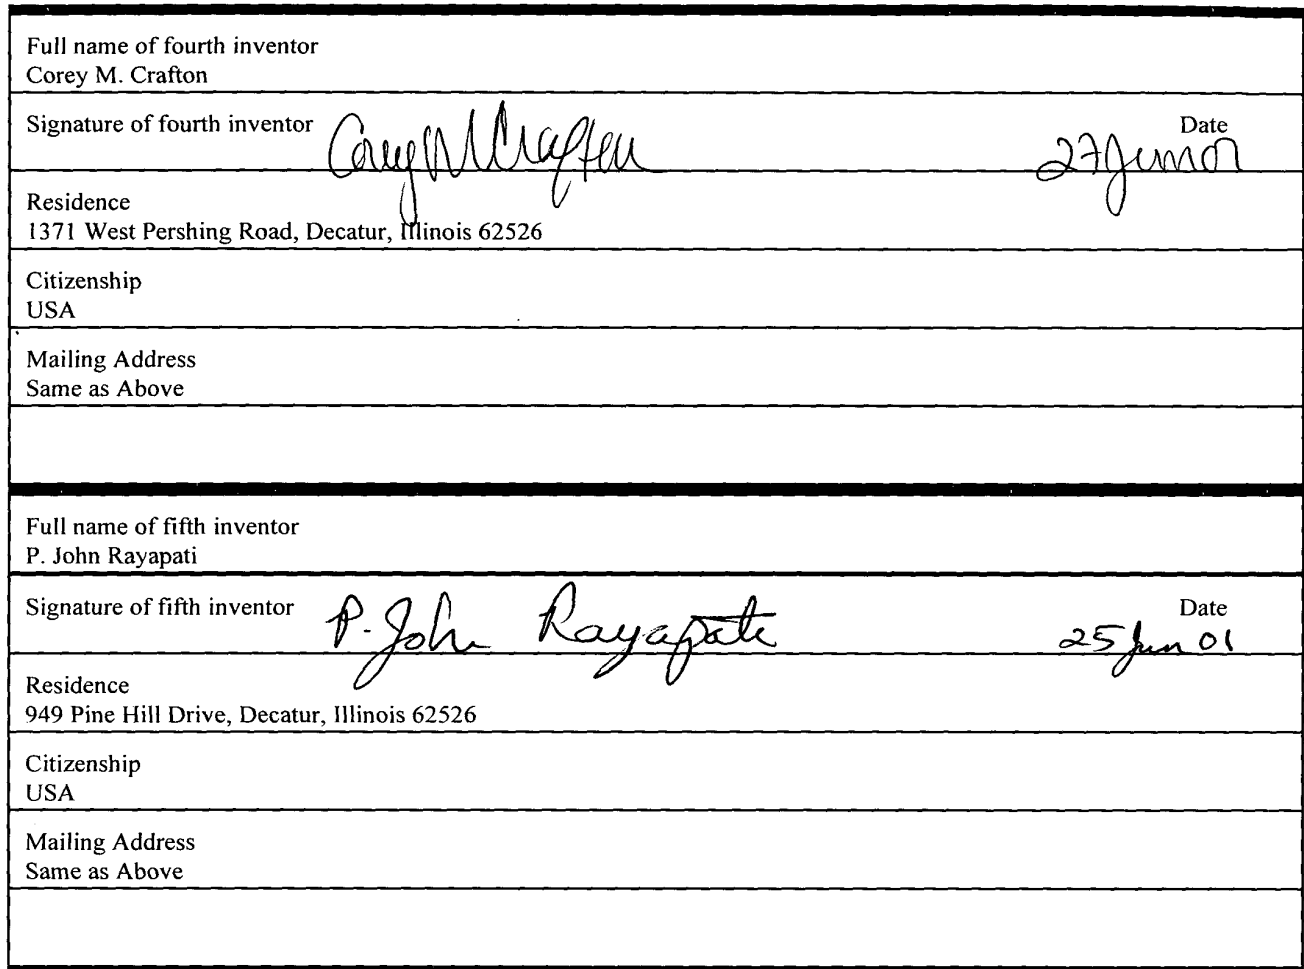 Full name of fourth inventor
Corey M. Crafton
Signature of fourth inventor Corey M Crafton Date
27 Jun 01
Residence
1371 West Pershing Road, Decatur, Illinois 62526
Citizenship
USA
Mailing Address
Same as Above
Full name of fifth inventor
P. John Rayapati
Signature of fifth inventor P. John Rayapati Date
25 Jun 01
Residence
949 Pine Hill Drive, Decatur, Illinois 62526
Citizenship
USA
Mailing Address
Same as Above